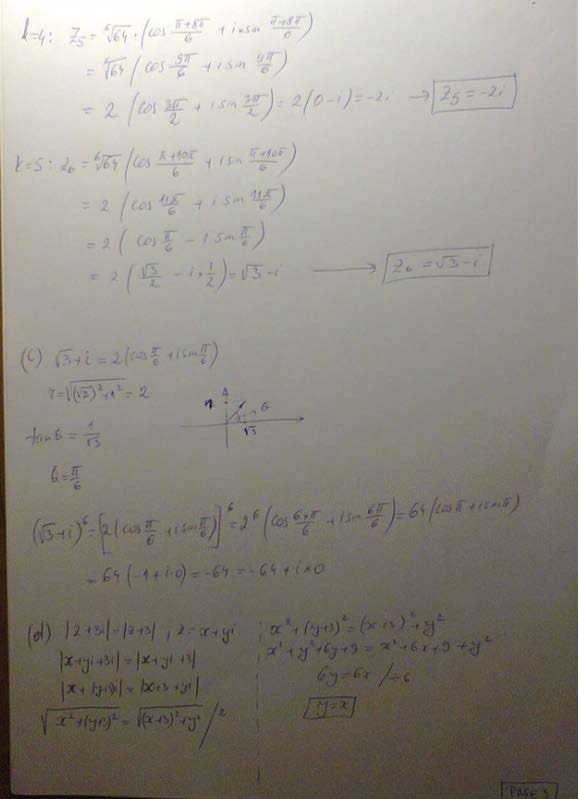 k=4: Z₅ = ⁶√64 · (cos (π+8π)/6 + i×sin (π+8π)/6)
= ⁶√64 (cos 9π/6 + i sin 9π/6)
= 2 (cos 3π/2 + i sin 3π/2) = 2(0-i) = -2i → Z₅ = -2i
k=5: Z₆ = ⁶√64 (cos (π+10π)/6 + i sin (π+10π)/6)
= 2 (cos 11π/6 + i sin 11π/6)
= 2 (cos π/6 - i sin π/6)
= 2 (√3/2 - i×1/2) = √3 - i → Z₆ = √3 - i
(c) √3+i = 2(cos π/6 + i sin π/6)
r = √((√3)²+1²) = 2
1 θ
√3
tan θ = 1/√3
θ = π/6
(√3+i)⁶ = [2(cos π/6 + i sin π/6)]⁶ = 2⁶ (cos 6×π/6 + i sin 6π/6) = 64 (cos π + i sin π)
= 64(-1+i·0) = -64 = -64+i×0
(d) |z+3i| = |z+3| , z = x+yi
|x+yi+3i| = |x+yi+3|
|x+(y+3)i| = |x+3+yi|
√(x²+(y+3)²) = √((x+3)²+y²) /²
x²+(y+3)² = (x+3)²+y²
x²+y²+6y+9 = x²+6x+9+y²
6y = 6x /÷6
y = x
PAGE 3